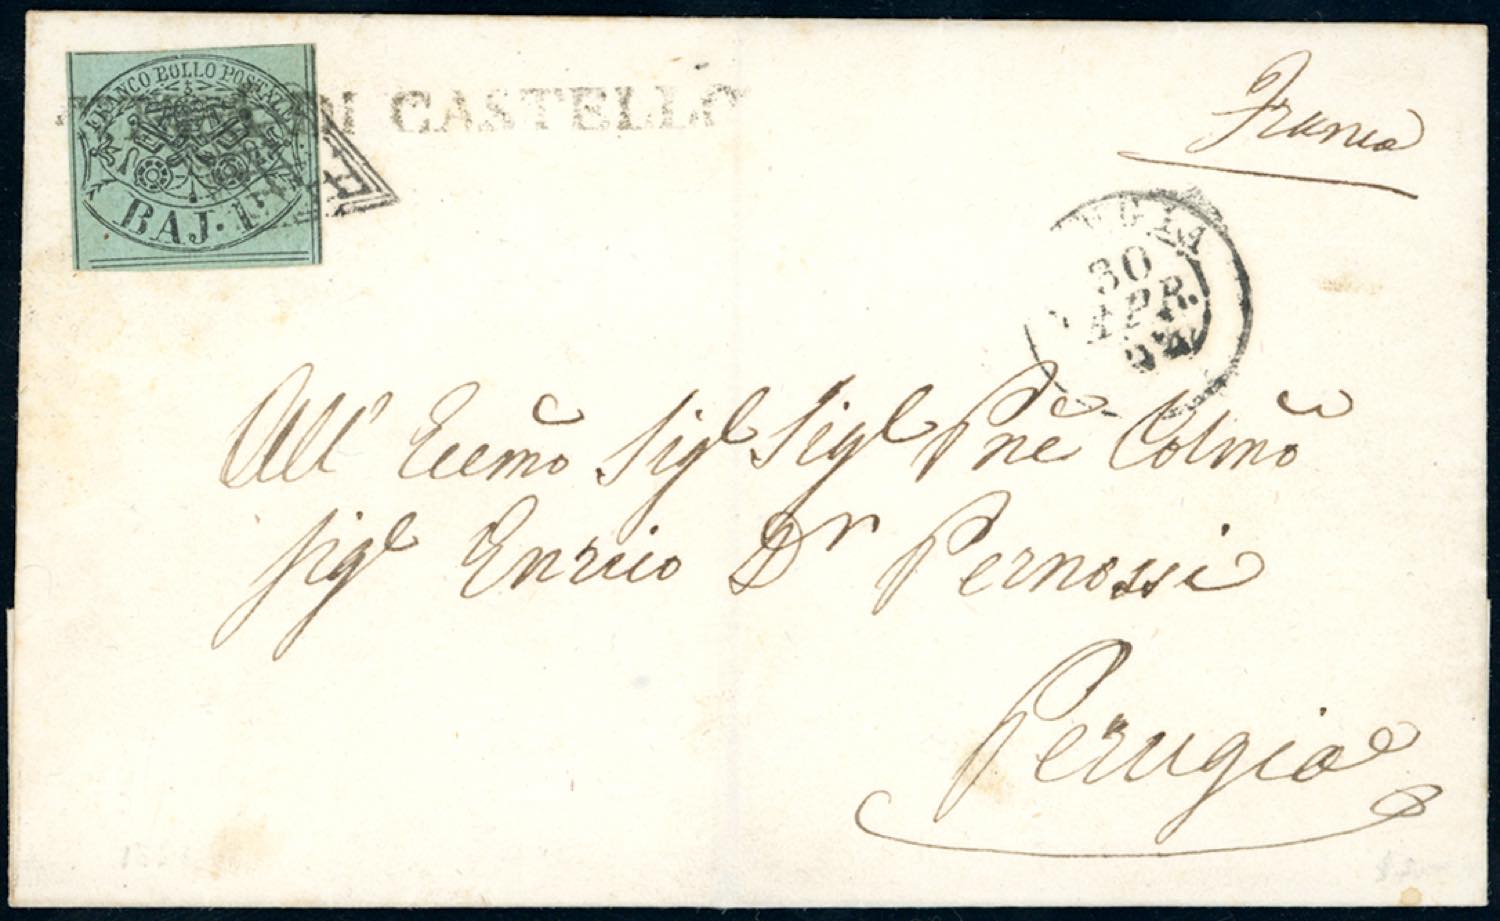 FRANCO BOLLO POSTALE
BAJ. 1
DI CASTELLO
Franca
UGIA
30
APR.
All' Eccmo Sigl Sigl Pne Colmo
Sigl Enrico Dr Pernossi
Perugia